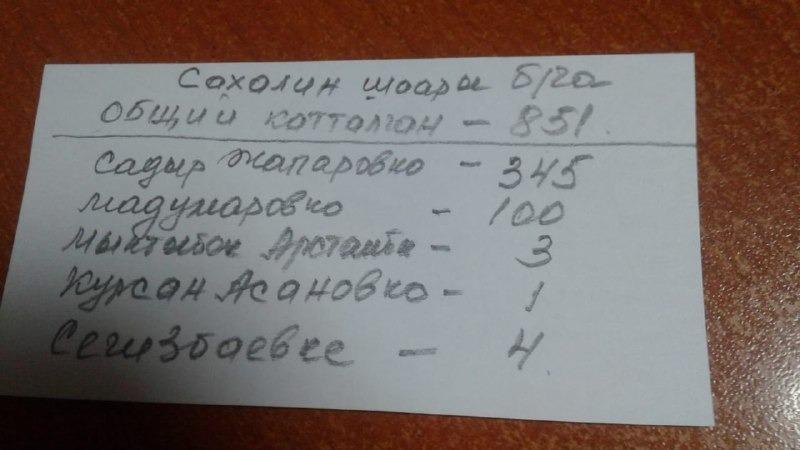 Сахалин шаары б/ча
Общий катталган – 851.
Садыр Жапаровко – 345
Мадумаровко – 100
Мыктыбек Арстанбек – 3
Курсан Асановко – 1
Сегизбаевке – 4